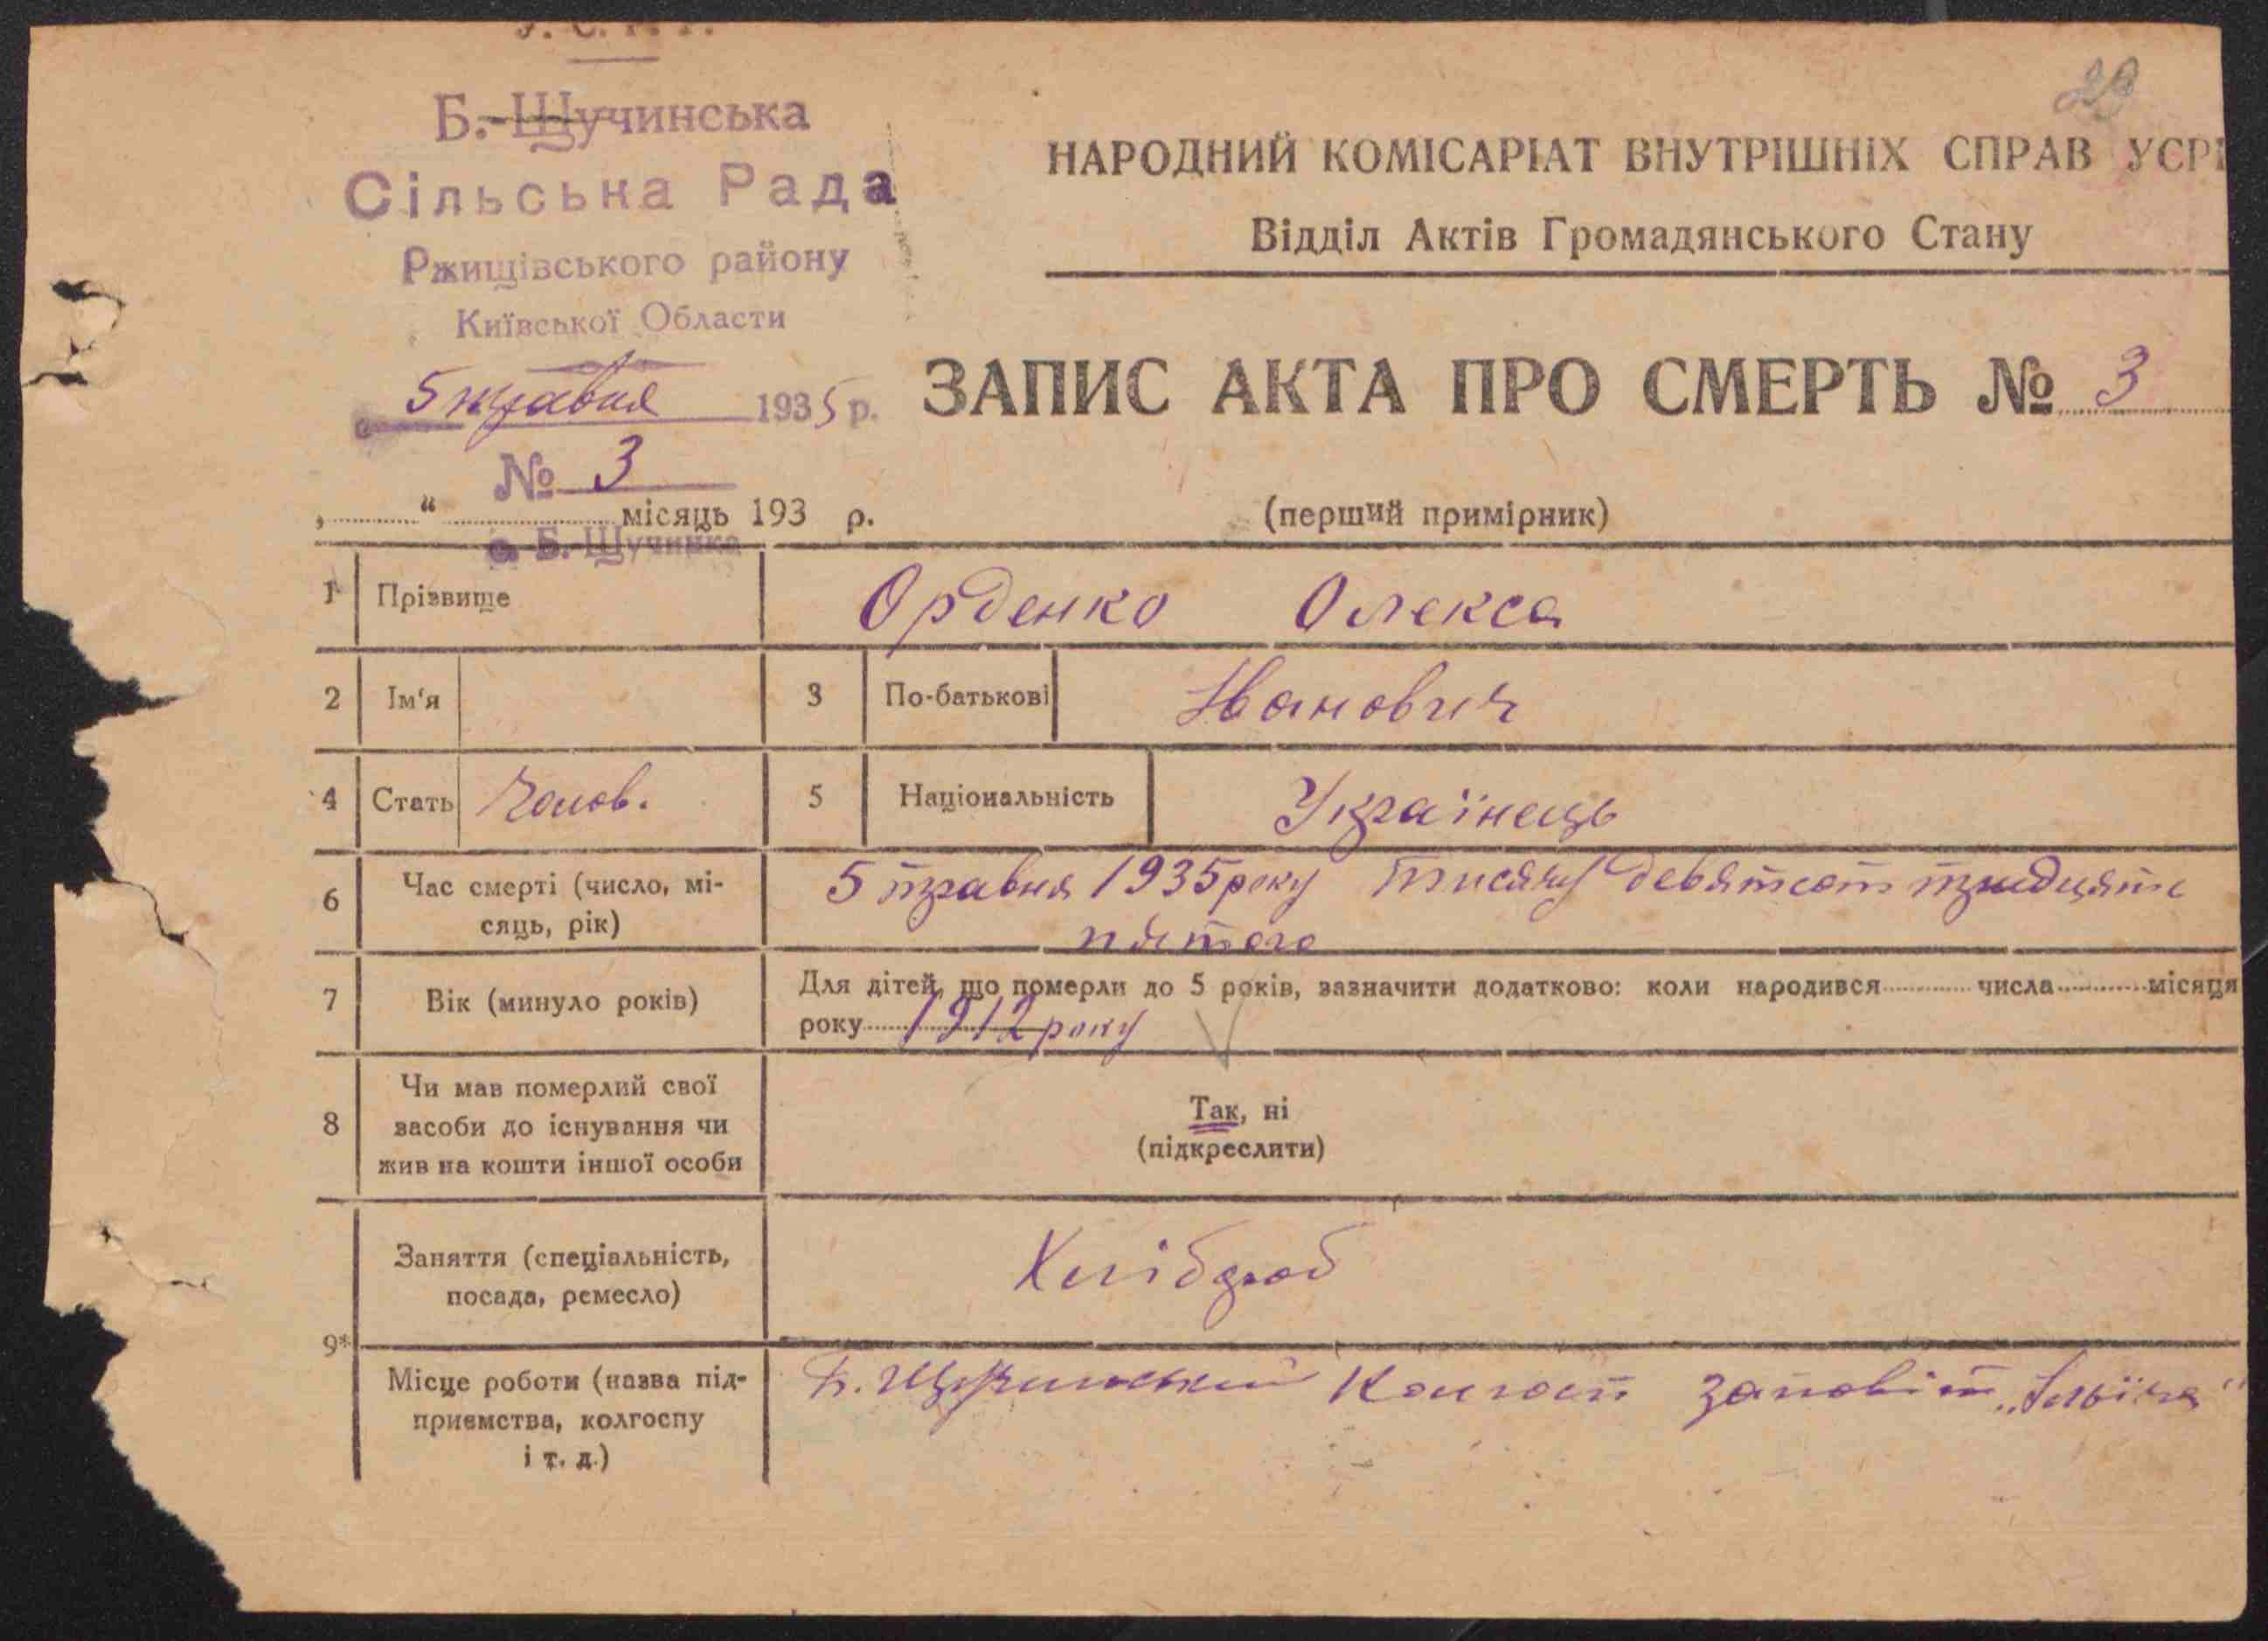 У. С. Р. Р.
29
Б.-Щучинська
Сільська Рада
Ржищівського району
Київської Области
5 травня 1935 р.
№ 3
„ “ місяць 193 р.
с. Б.-Щучинка
НАРОДНИЙ КОМІСАРІАТ ВНУТРІШНІХ СПРАВ УСРР
Відділ Актів Громадянського Стану
ЗАПИС АКТА ПРО СМЕРТЬ № 3
(перший примірник)
1 Прізвище Орденко Олекса
2 Ім'я 3 По-батькові Іванович
4 Стать Чолов. 5 Національність Українець
6 Час смерті (число, мі-
сяць, рік)
5 травня 1935 року тисячу девятсот тридцять
пятого
7 Вік (минуло років)
Для дітей, що померли до 5 років, зазначити додатково: коли народився числа місяця
року 1912 року
8 Чи мав померлий свої
засоби до існування чи
жив на кошти іншої особи
Так, ні
(підкреслити)
9*
Заняття (спеціальність,
посада, ремесло)
Хлібороб
Місце роботи (назва під-
приємства, колгоспу
і т. д.)
Б. Щучинський Колгосп Заповіт „Ільїча“